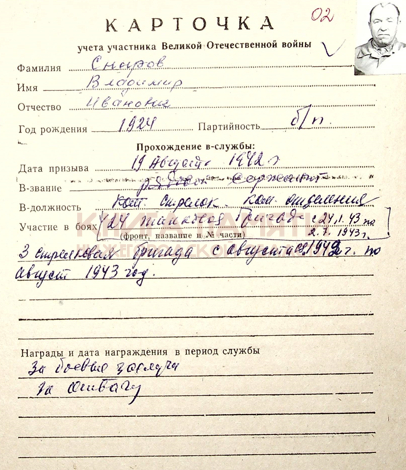 02
КАРТОЧКА
учета участника Великой Отечественной войны
Фамилия
Имя Владимир
Отчество Иванович
Год рождения 1924 Партийность б/п.
Прохождение в-службы:
Дата призыва 19 Августа 1942 г
В-звание Сержант
В-должность ком. отделения
Участие в боях 424 танковая бригада с 24.1.43 по
(фронт, название и № части) 2.7.1943 г.
3 стрелковая бригада с августа 1942 г. по
август 1943 год.
Награды и дата награждения в период службы
За боевые заслуги
За Отвагу